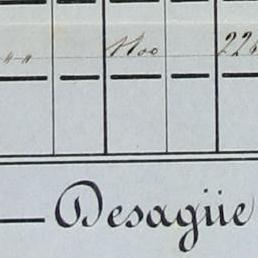 " " 1100 226
Desagüe